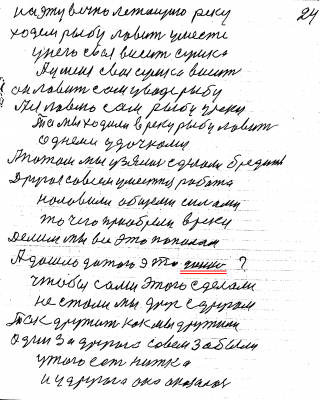 24
на эту вечно летающую реку
ходем рыбу ловит умести
у него свая висит сумка
А у меня свая сумка висит
он ловит сам у воде рыбу
А я ловлю сам рыбу у реки
Та мы ходили в реку рыбу ловит
одними удочками
А потом мы узялис сделали бредить
Другая совсем умести работа
наловили общими силами
то чего приобрели в реки
Делим мы все это пополам
А дошло до того это ?
чтобы сами этого сделали
не стали мы друг с другом
Так дружит как мы дружили
Один за другога совсем забыли
у того сот нитка
и у другога она оказалас